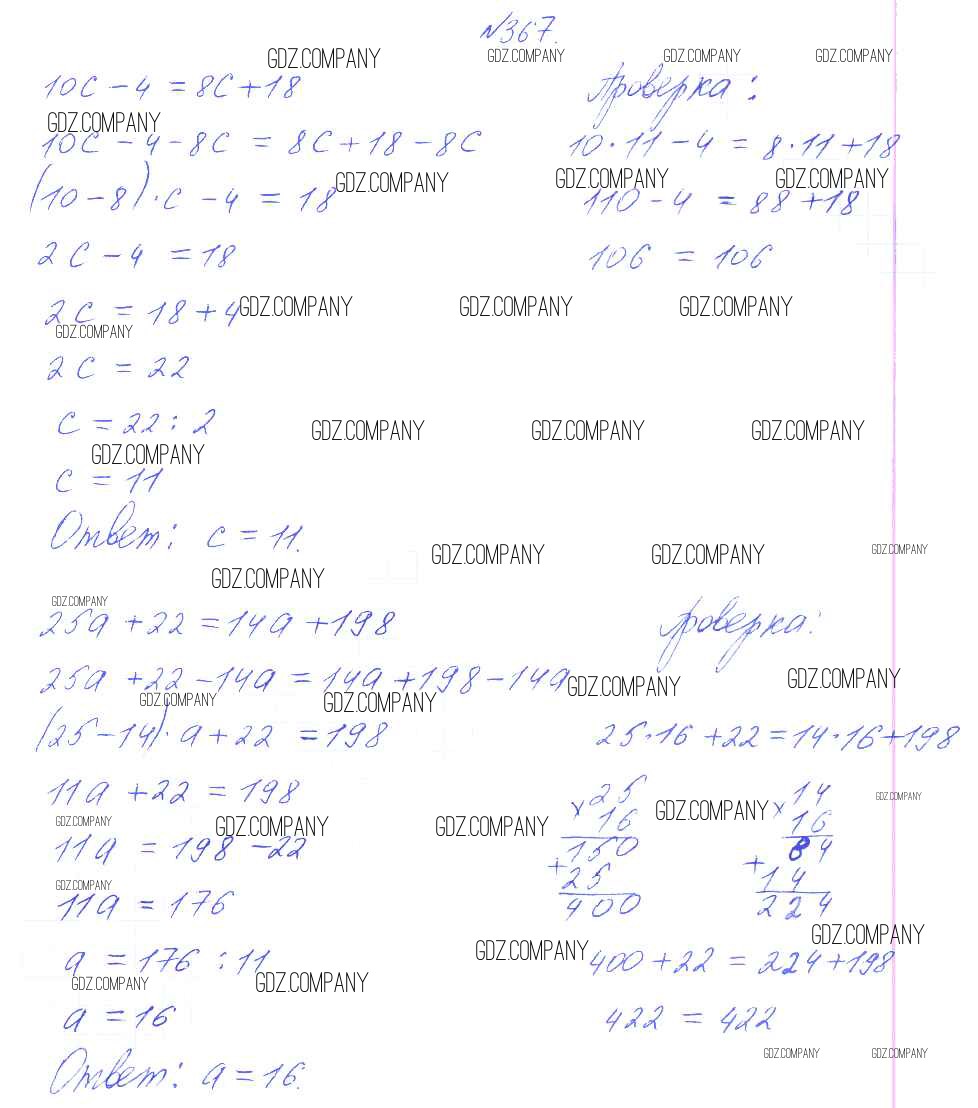 №367.
GDZ.COMPANY GDZ.COMPANY GDZ.COMPANY GDZ.COMPANY
10c - 4 = 8c + 18
Проверка:
GDZ.COMPANY
10c - 4 - 8c = 8c + 18 - 8c
10·11 - 4 = 8·11 + 18
GDZ.COMPANY GDZ.COMPANY GDZ.COMPANY
(10 - 8)·c - 4 = 18
110 - 4 = 88 + 18
2c - 4 = 18
106 = 106
2c = 18 + 4
GDZ.COMPANY GDZ.COMPANY GDZ.COMPANY
GDZ.COMPANY
2c = 22
c = 22 : 2
GDZ.COMPANY GDZ.COMPANY GDZ.COMPANY
GDZ.COMPANY
c = 11
Ответ: c = 11.
GDZ.COMPANY GDZ.COMPANY GDZ.COMPANY
GDZ.COMPANY
GDZ.COMPANY
25a + 22 = 14a + 198
Проверка:
25a + 22 - 14a = 14a + 198 - 14a
GDZ.COMPANY GDZ.COMPANY
GDZ.COMPANY GDZ.COMPANY
(25 - 14)·a + 22 = 198
25·16 + 22 = 14·16 + 198
11a + 22 = 198
GDZ.COMPANY
× 25
16
150
+ 25
400
× 14
16
84
+ 14
224
GDZ.COMPANY
GDZ.COMPANY GDZ.COMPANY GDZ.COMPANY
11a = 198 - 22
GDZ.COMPANY
11a = 176
GDZ.COMPANY GDZ.COMPANY
a = 176 : 11
400 + 22 = 224 + 198
GDZ.COMPANY GDZ.COMPANY
a = 16
422 = 422
GDZ.COMPANY GDZ.COMPANY
Ответ: a = 16.